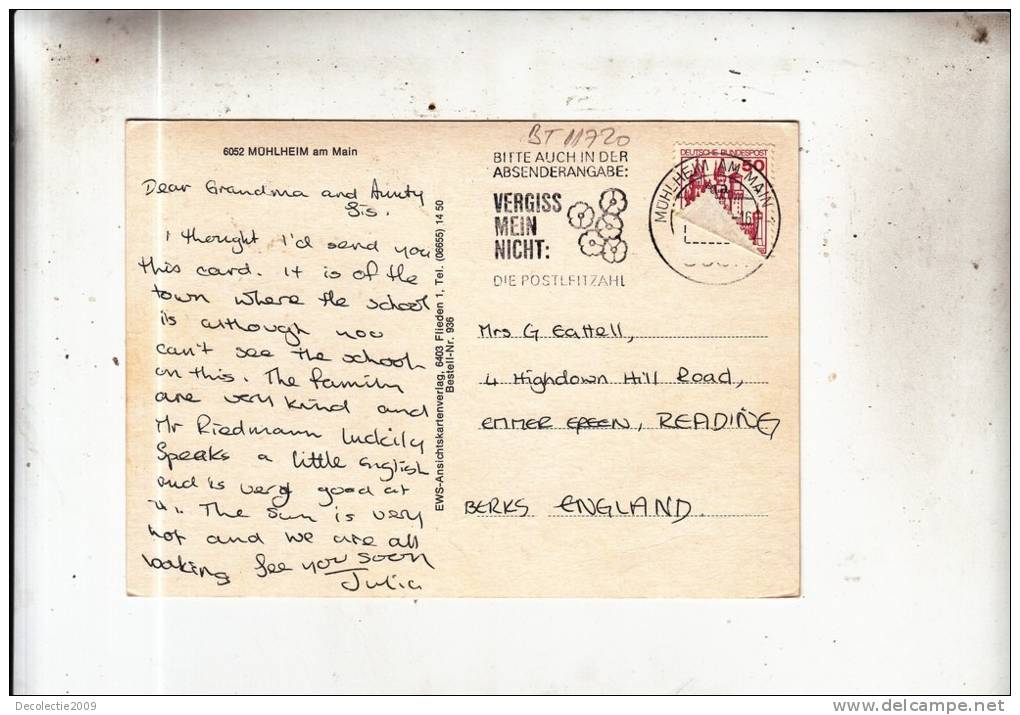 BT 11720
6052 MÜHLHEIM am Main
Dear Grandma and Aunty
Sis.
I thought I'd send you
this card. It is of the
town where the school
is although you
can't see the school
on this. The family
are very kind and
Mr Riedmann luckily
speaks a little english
and is very good at
it. The sun is very
hot and we are all
baking. See you soon
Julia
EWS-Ansichtskartenverlag, 6403 Flieden 1, Tel. (06655) 14 50
Bestell-Nr. 936
BITTE AUCH IN DER
ABSENDERANGABE:
VERGISS
MEIN
NICHT:
DIE POSTLEITZAHL
DEUTSCHE BUNDESPOST
50
MÜHLHEIM AM MAIN
16
Mrs G Eattell,
4 Highdown Hill Road,
EMMER GREEN, READING
BERKS ENGLAND.
Decolectie2009
www.delcampe.net